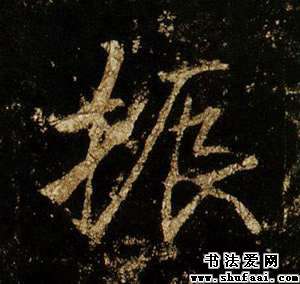 振
书法爱网
www.shufaai.com